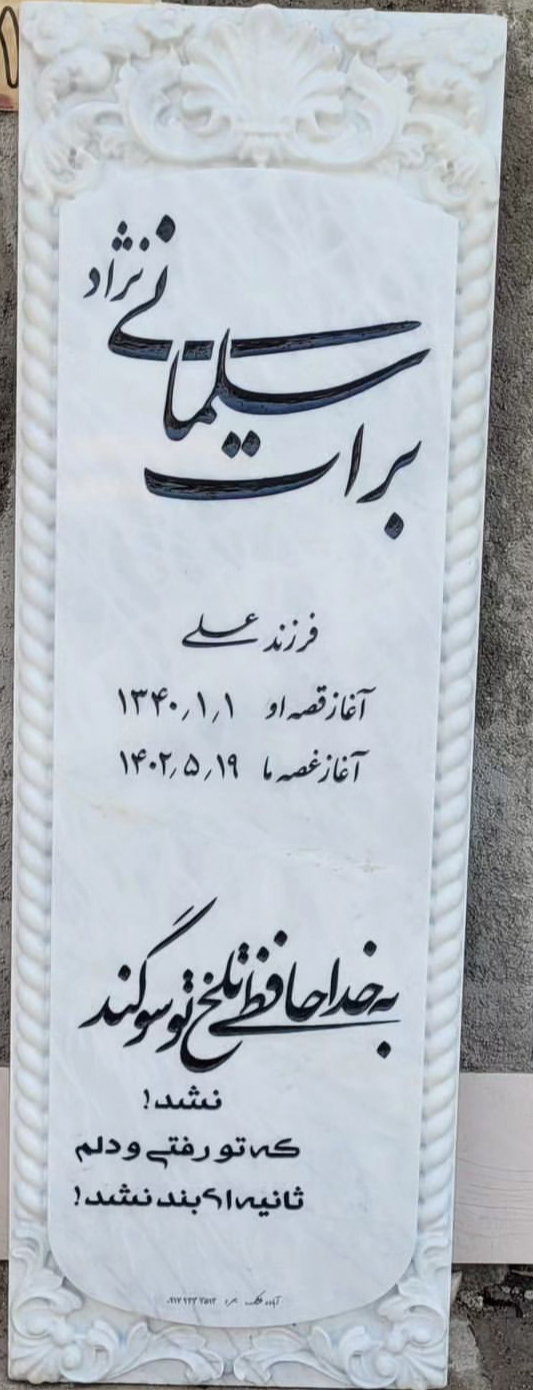 برات
سلیمانی نژاد
فرزند علی
آغاز قصه او ۱۳۴۰/۱/۱
آغاز غصه ما ۱۴۰۲/۵/۱۹
به خداحافظی تلخ تو سوگند
نشد!
که تو رفتی و دلم
ثانیه ای بند نشد!